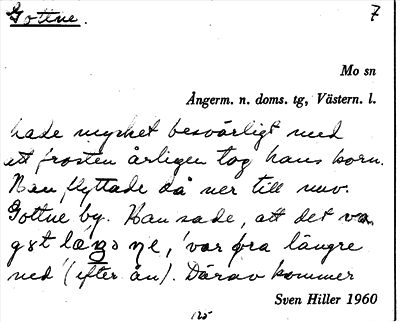 Gottne. 7
Mo sn
Ångerm. n. doms. tg, Västern. l.
hade mycket besvärligt med
att frosten årligen tog hans korn.
Han flyttade då ner till nuv.
Gottne by. Han sade, att det va
gȯt, 'var bra längre
ned' (efter ån). Därav kommer
Sven Hiller 1960
125